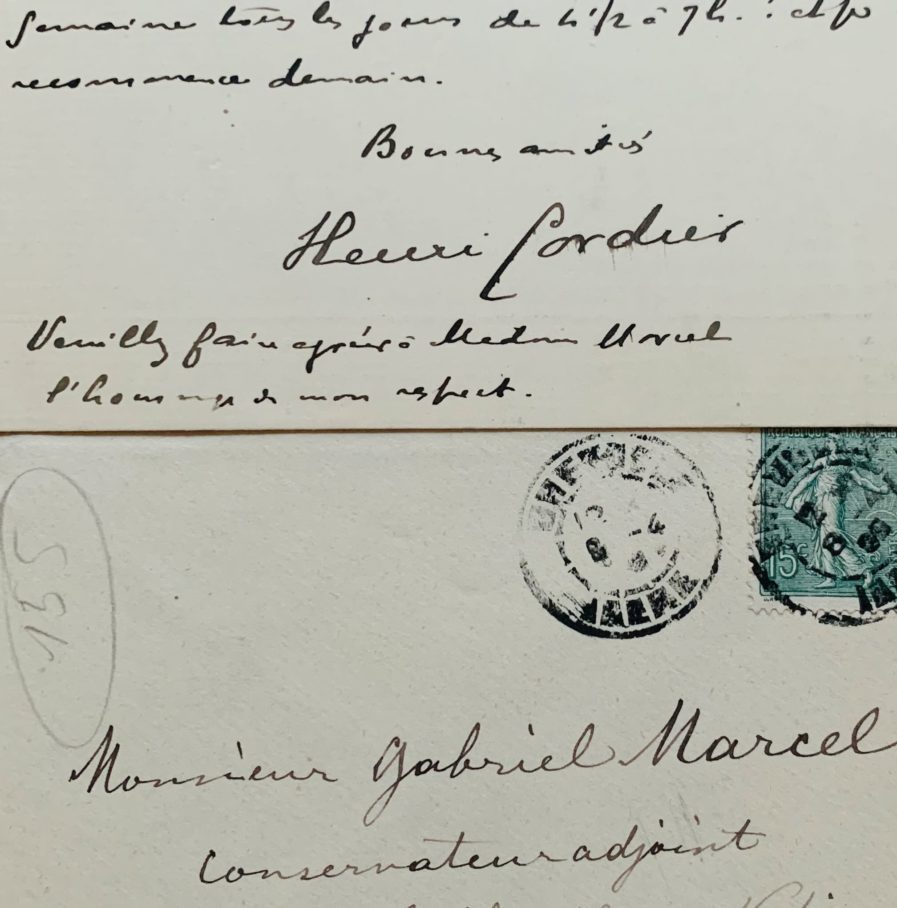 Semaine tous les jours de 4 1/2 à 7h. : et je
recommence demain.
Bonnes amitiés
Henri Cordier
Veuillez faire agréer à Madame Marcel
l'hommage de mon respect.
155
15c
Monsieur Gabriel Marcel
Conservateur adjoint